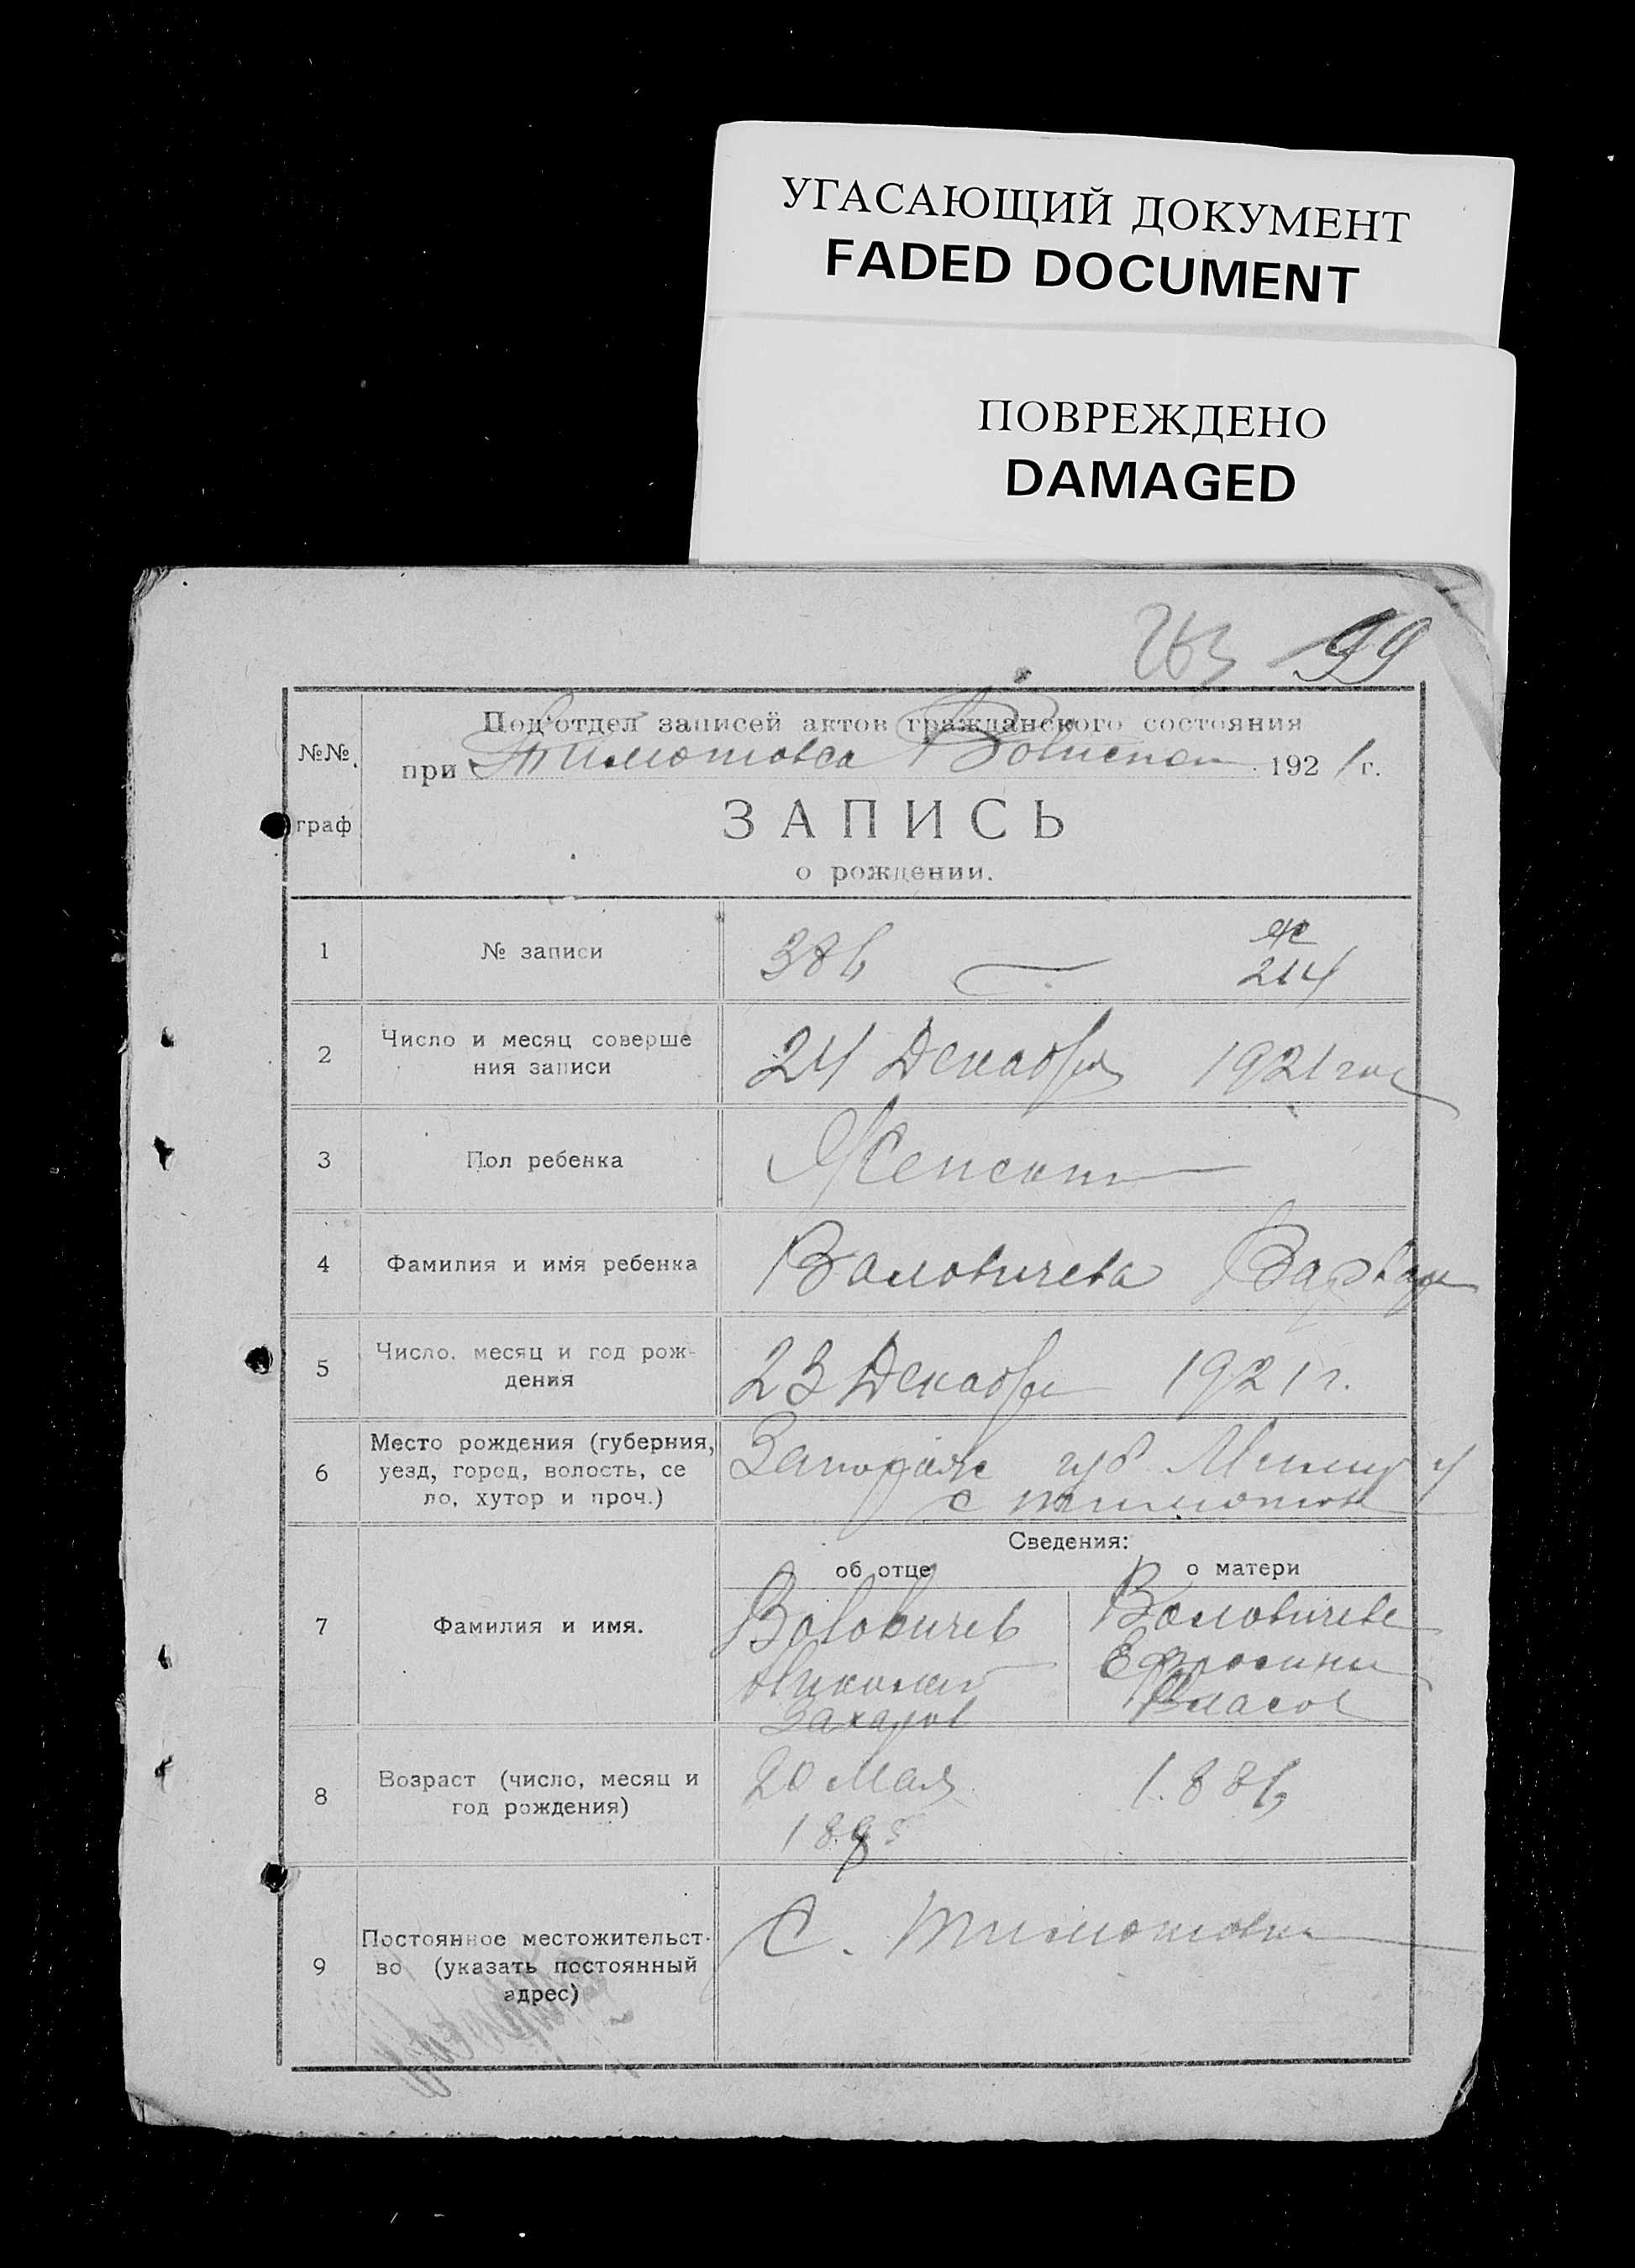 УГАСАЮЩИЙ ДОКУМЕНТ
FADED DOCUMENT
ПОВРЕЖДЕНО
DAMAGED
263 99
Под'отдел записей актов гражданского состояния
№№ при Тимошовка Волисполк 1921 г.
граф
ЗАПИСЬ
о рождении.
1 № записи 386 ж
214
2 Число и месяц соверше 24 Декабря 1921 год
ния записи
3 Пол ребенка Женский
4 Фамилия и имя ребенка Воловичева Варвара
5 Число, месяц и год рож- 23 Декабря 1921 г.
дения
6 Место рождения (губерния, Запорож губ
уезд, город, волость, се с Тимошовк
ло, хутор и проч.)
Сведения:
об отце о матери
7 Фамилия и имя. Воловичев Воловичева
Николай Ефросиния
Захаров Власов
8 Возраст (число, месяц и 20 Мая 1886
год рождения)
9 Постоянное местожительст- С. Тимошовка
во (указать постоянный
адрес)